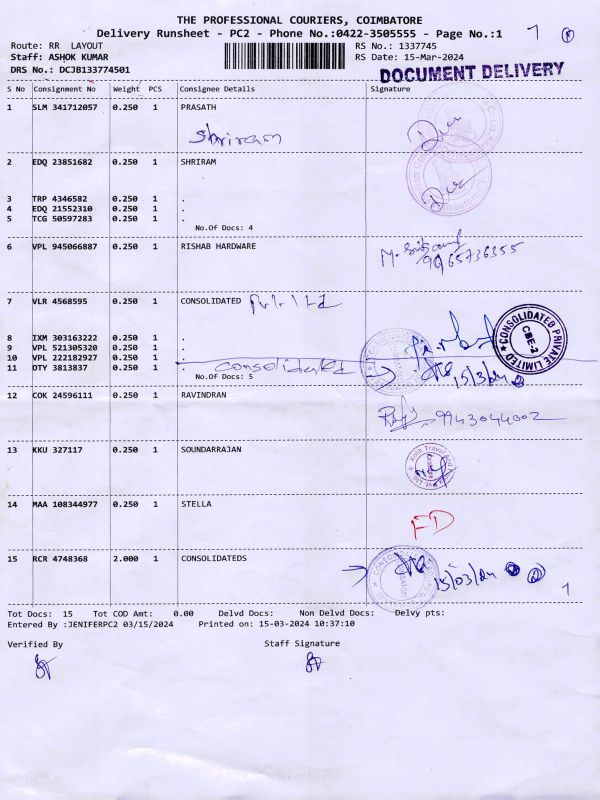 THE PROFESSIONAL COURIERS, COIMBATORE
Delivery Runsheet - PC2 - Phone No.:0422-3505555 - Page No.:1
Route: RR LAYOUT
RS No.: 1337745
Staff: ASHOK KUMAR
RS Date: 15-Mar-2024
DRS No.: DCJB133774501
DOCUMENT DELIVERY
S No Consignment No Weight PCS Consignee Details Signature
1 SLM 341712057 0.250 1 PRASATH
Shriram
2 EDQ 23851682 0.250 1 SHRIRAM
3 TRP 4346582 0.250 1 .
4 EDQ 21552310 0.250 1 .
5 TCG 50597283 0.250 1 .
No.Of Docs: 4
6 VPL 945066887 0.250 1 RISHAB HARDWARE
9965736355
7 VLR 4568595 0.250 1 CONSOLIDATED Pvt. Ltd
8 IXM 303163222 0.250 1 .
9 VPL 521305320 0.250 1 .
10 VPL 222182927 0.250 1 .
11 OTY 3813837 0.250 1 . Consolidated
No.Of Docs: 5
CONSOLIDATED PRIVATE LIMITED
CBE-2
15/3/24
12 COK 24596111 0.250 1 RAVINDRAN
9943044002
13 KKU 327117 0.250 1 SOUNDARRAJAN
14 MAA 108344977 0.250 1 STELLA
FD
15 RCR 4748368 2.000 1 CONSOLIDATEDS
15/03/24
1
Tot Docs: 15 Tot COD Amt: 0.00 Delvd Docs: Non Delvd Docs: Delvy pts:
Entered By :JENIFERPC2 03/15/2024 Printed on: 15-03-2024 10:37:10
Verified By Staff Signature